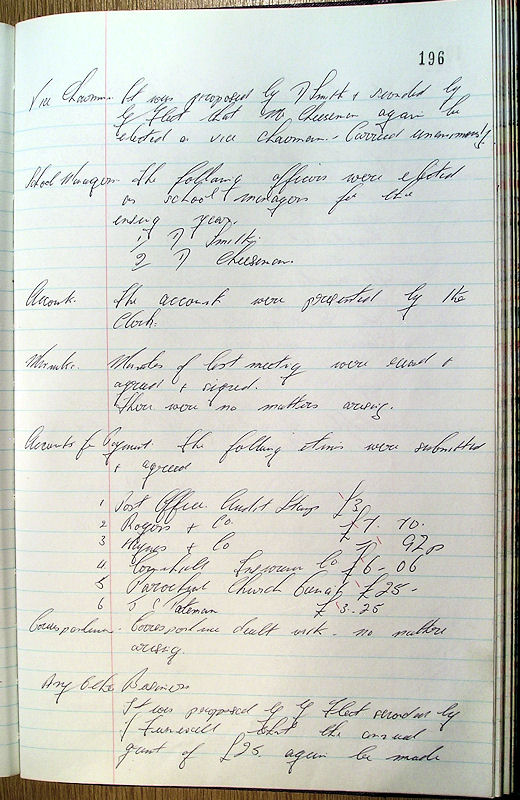 196
Vice Chairman. It was proposed by D Smith & seconded by
G Fleet that Mr Cheeseman again be
elected as vice chairman. Carried unanimously.
School Managers. The following officers were elected
as school managers for the
ensuing year.
1 D Smith.
2 D Cheeseman.
Accounts. The accounts were presented by the
Clerk.
Minutes. Minutes of last meeting were read &
agreed & signed.
There were no matters arising.
Accounts for Payment The following items were submitted
& agreed
1 Post Office. Audit Stamp £3
2 Rogers & Co. £7. 70.
3 Haynes & Co 92p
4 Cornhill Insurance Co £6-06
5 Parochial Church Council £25-
6 Bateman £3-25
Correspondence. Correspondence dealt with - no matters
arising.
Any Other Business
It was proposed by G Fleet seconded by
that the annual
grant of £25 again be made